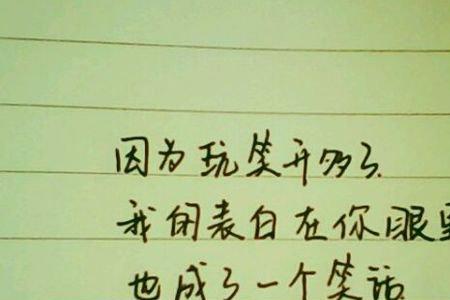 因为玩笑开多了.
我的表白在你眼里
也成了一个笑话